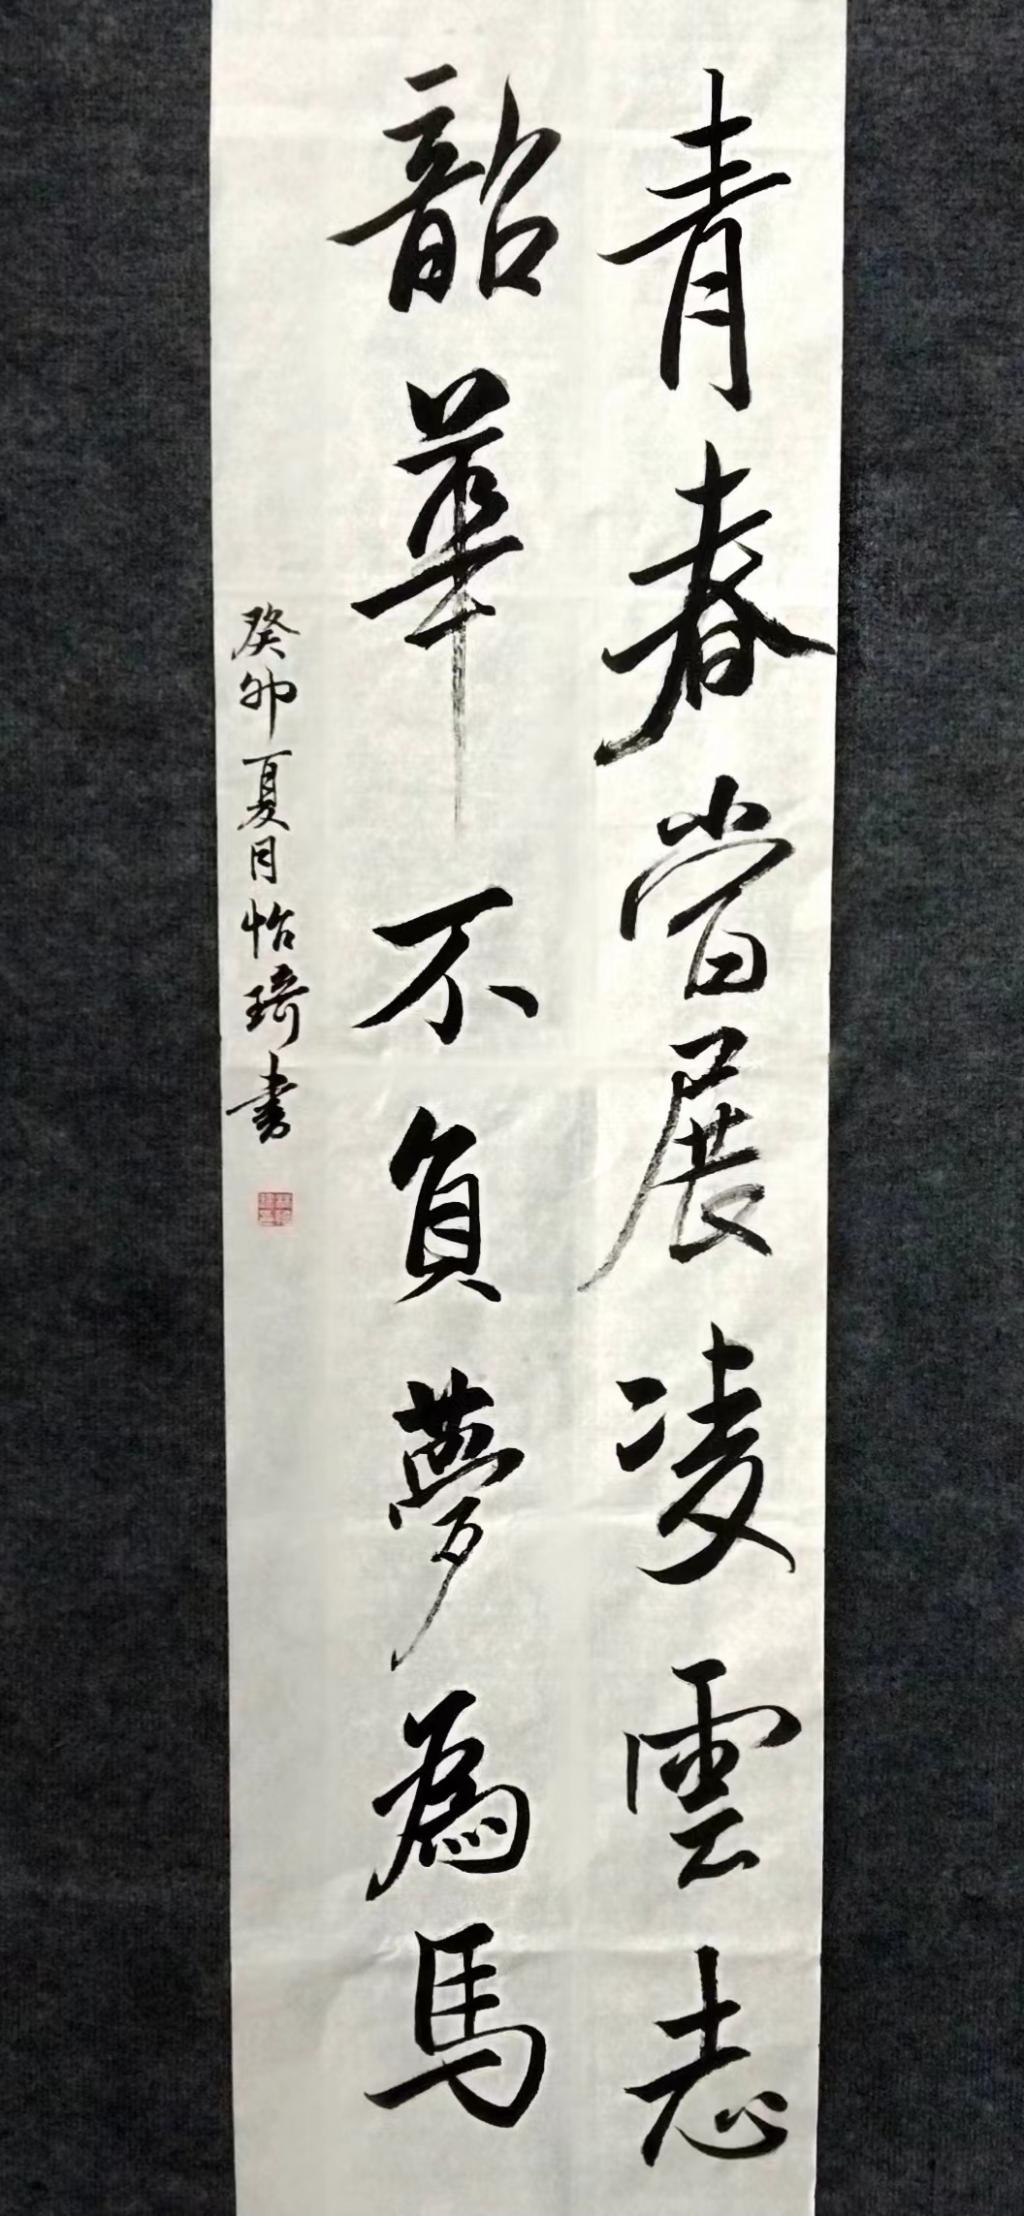 青春當展凌雲志
韶華不負夢為馬
癸卯夏月怡琦書